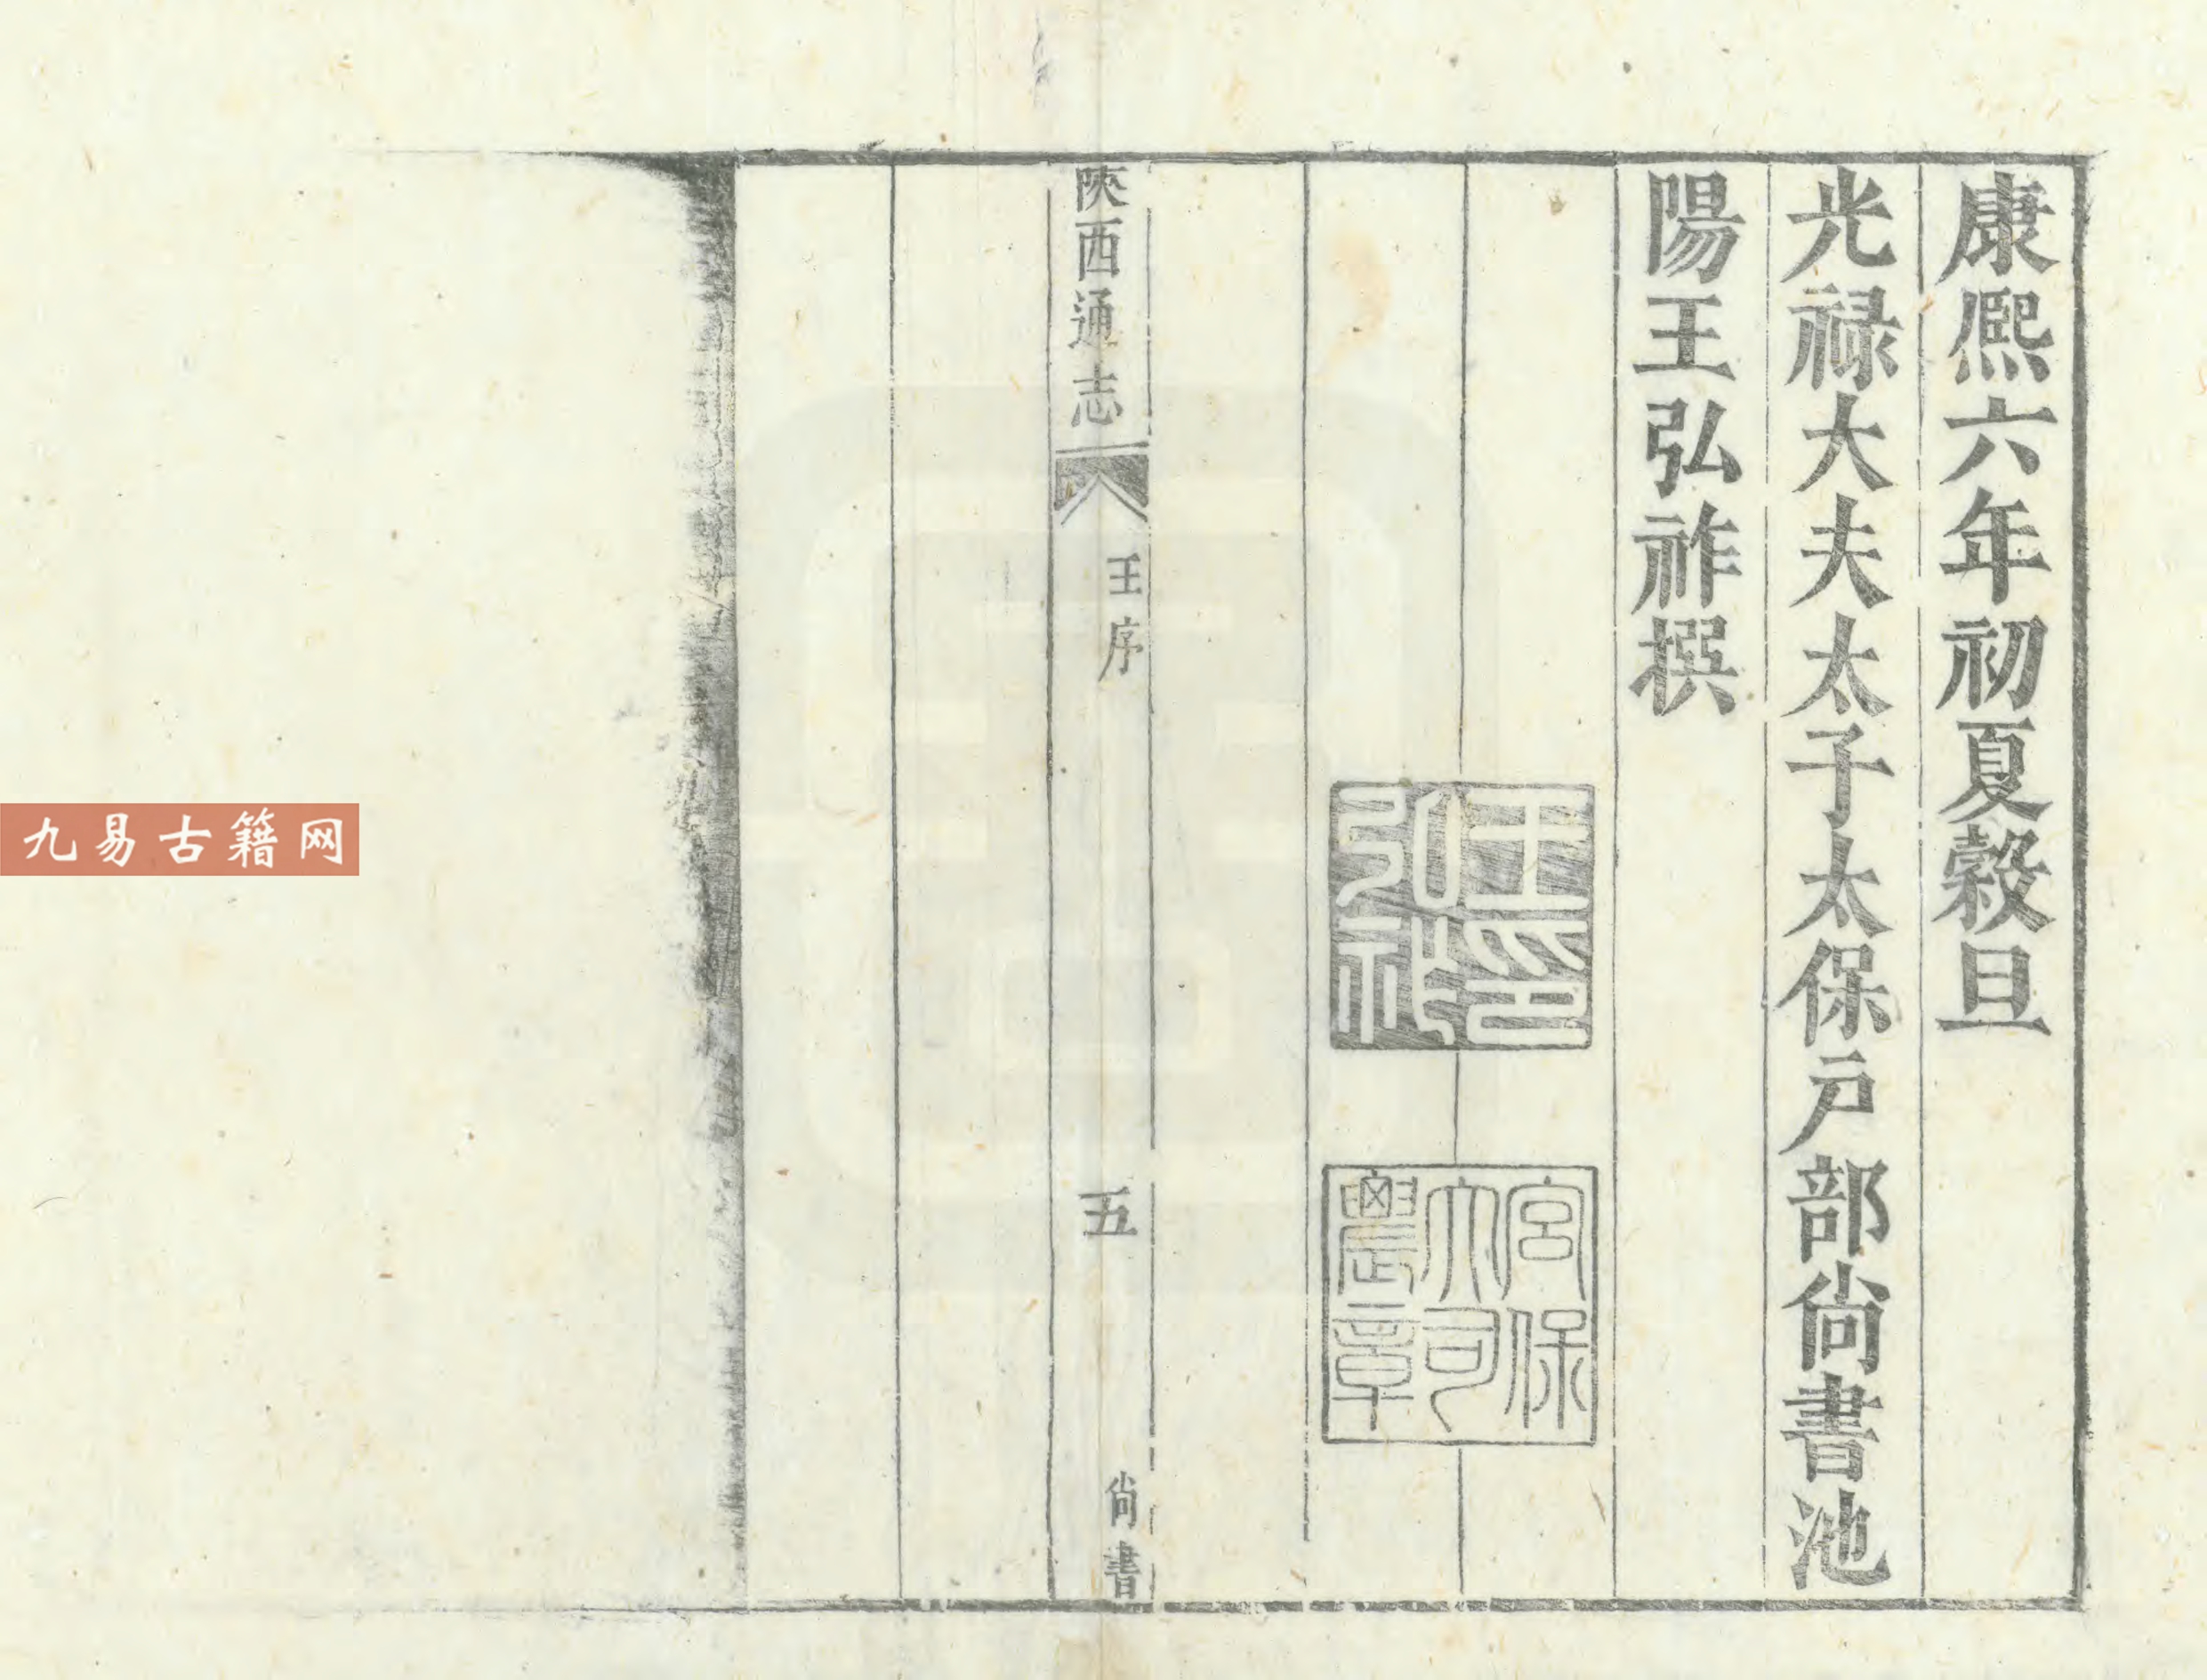 康熙六年初夏穀旦
光禄大夫太子太保戶部尚書池
陽王弘祚撰
王印
弘祚
宮保
大司
農章
陝西通志
王序
五
尚書
九易古籍网